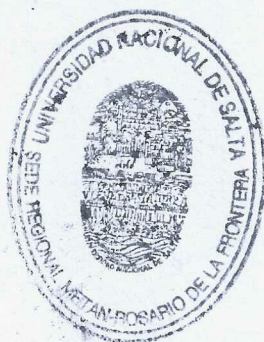 UNIVERSIDAD NACIONAL DE SALTA
SEDE REGIONAL METAN-ROSARIO DE LA FRONTERA